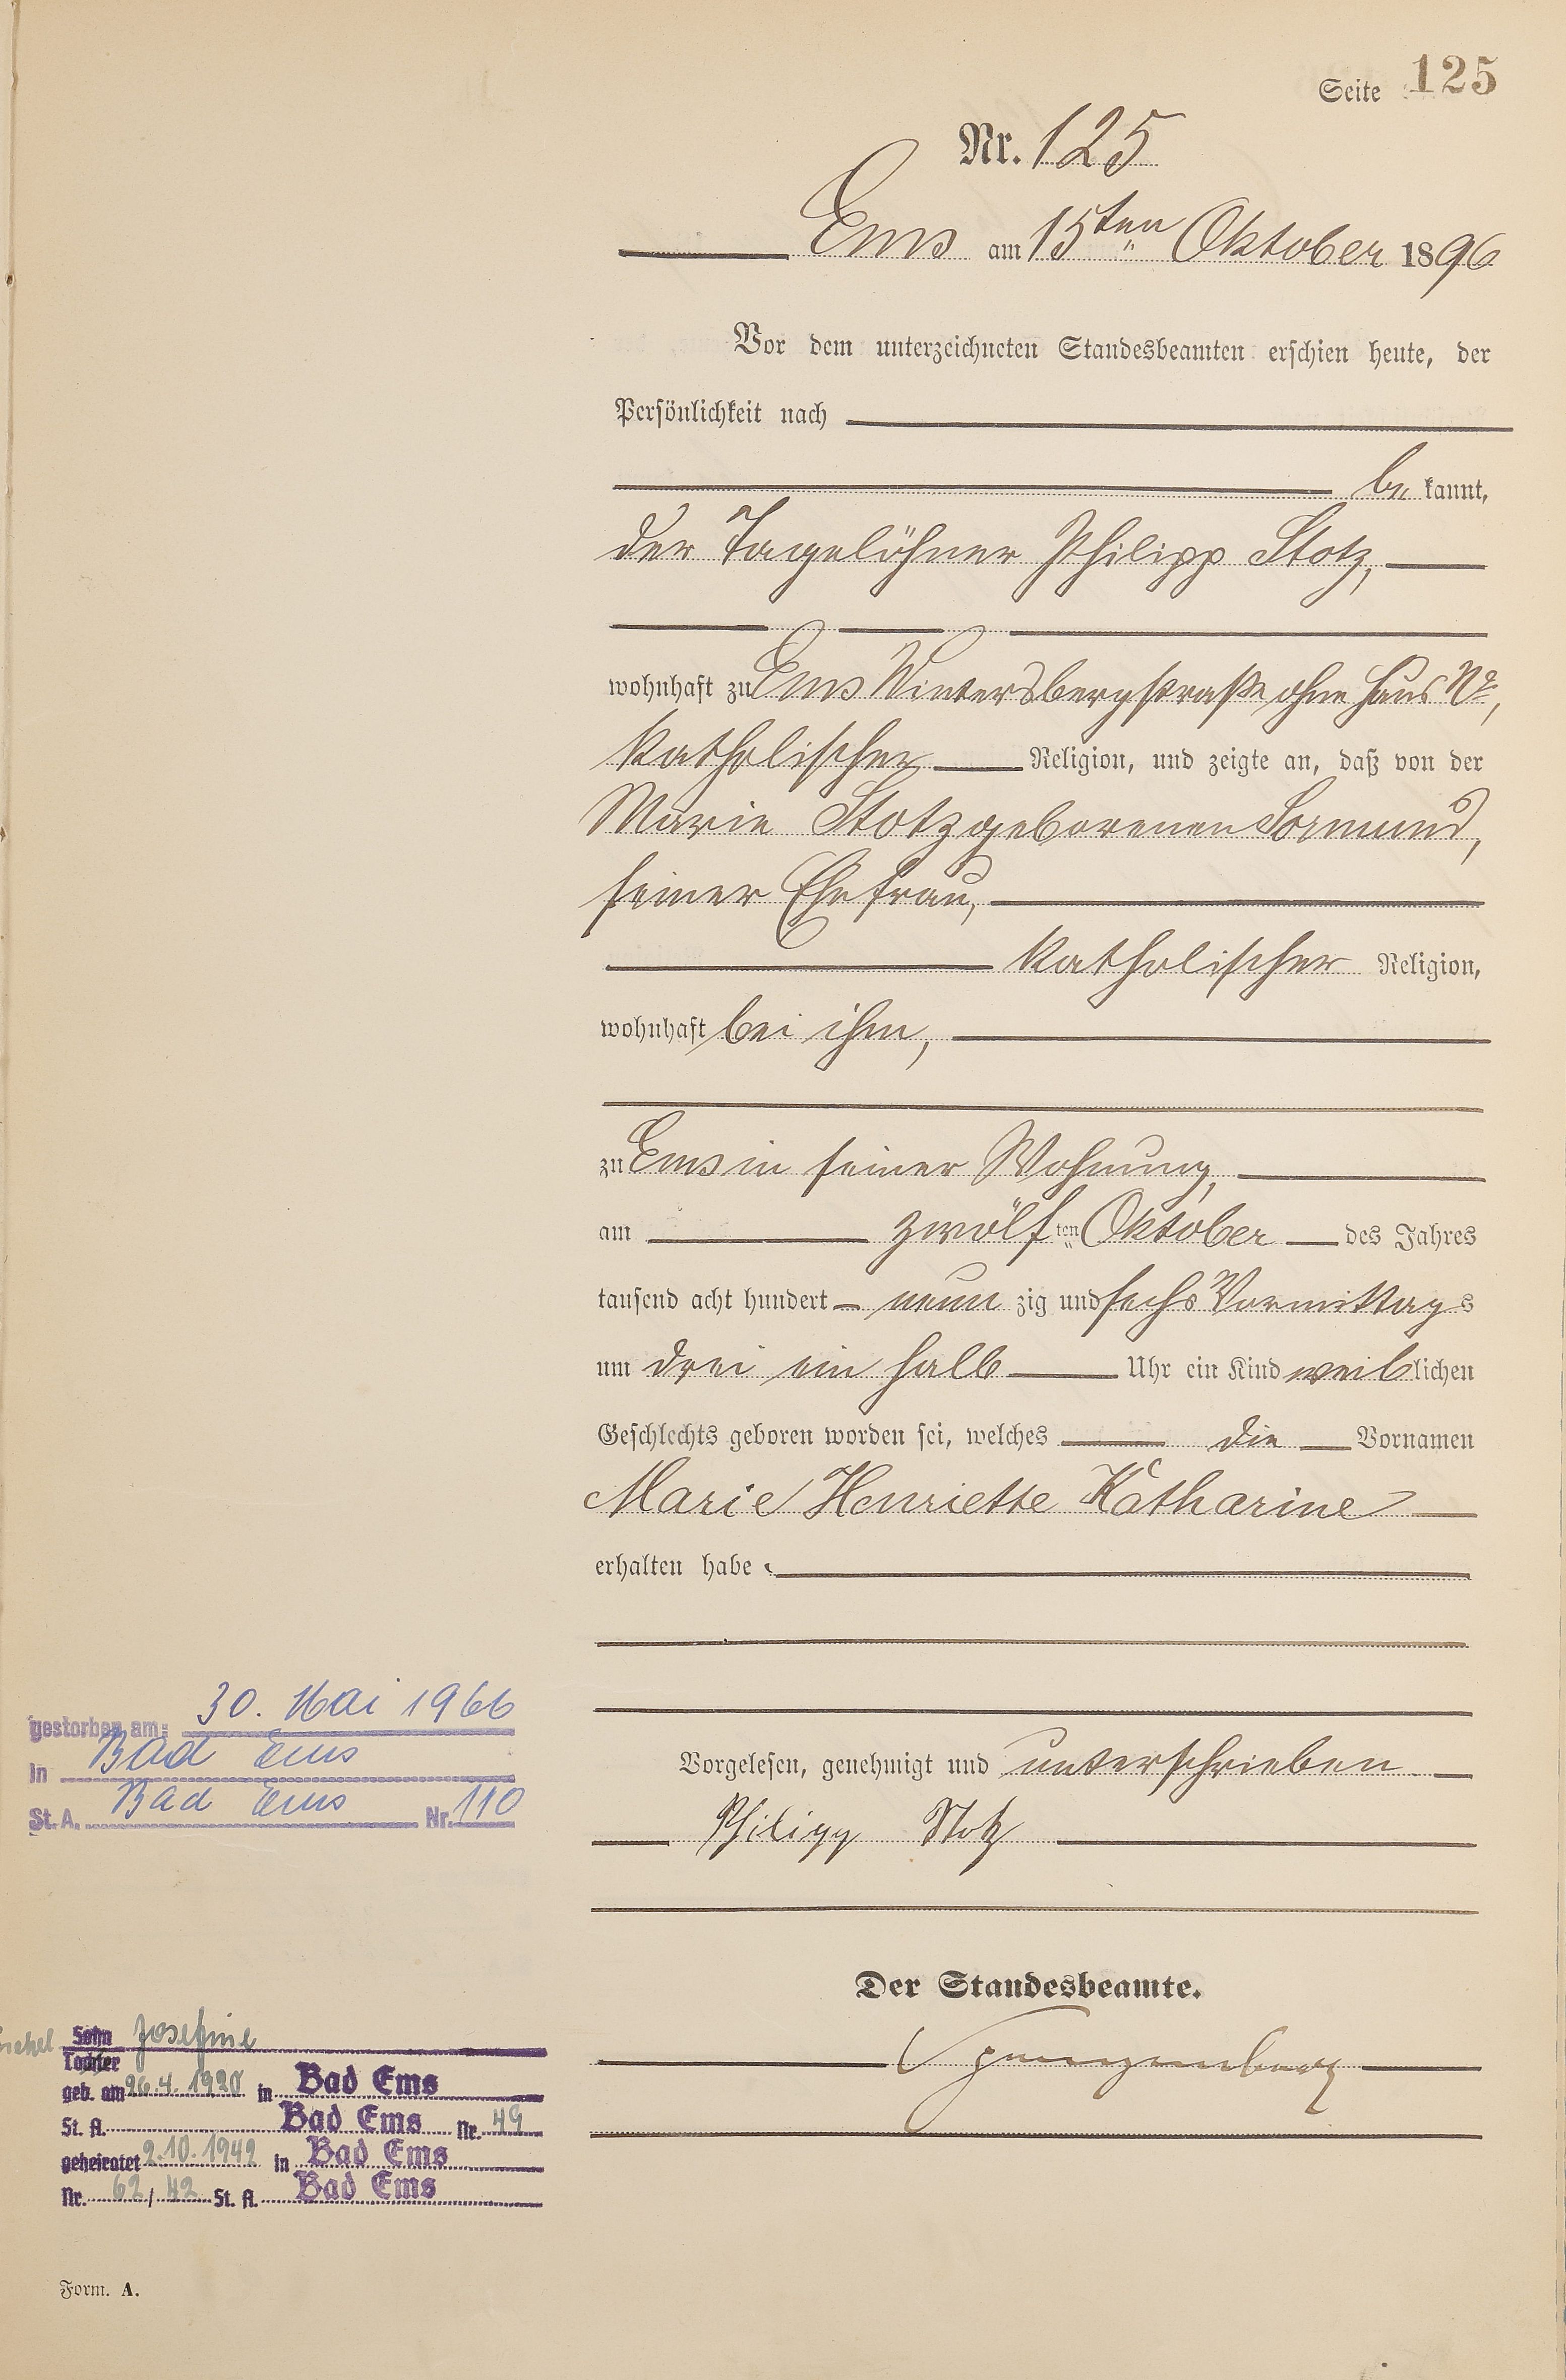 Seite 125
Nr. 125
Ems am 15ten Oktober 1896
Vor dem unterzeichneten Standesbeamten erschien heute, der
Persönlichkeit nach
be kannt,
der Tagelöhner Philipp Stotz,
wohnhaft zu Ems Wintersbergstraße ohne Haus No,
katholischer Religion, und zeigte an, daß von der
Marie Stotz geborenen Sormund,
seiner Ehefrau,
katholischer Religion,
wohnhaft bei ihm,
zu Ems in seiner Wohnung,
am zwölf ten Oktober des Jahres
tausend acht hundert neun zig und sechs Vormittags
um drei ein halb Uhr ein Kind weiblichen
Geschlechts geboren worden sei, welches die Vornamen
Marie Henriette Katharine
erhalten habe
Vorgelesen, genehmigt und unterschrieben
Philipp Stotz
Der Standesbeamte.
gestorben am: 30. Mai 1966
in Bad Ems
St. A. Bad Ems Nr. 110
Sohn Josefine
Tochter
geb. am 26.4.1920 in Bad Ems
St. A. Bad Ems Nr. 49
geheiratet 2.10.1942 in Bad Ems
Nr. 62/42 St. A. Bad Ems
Form. A.